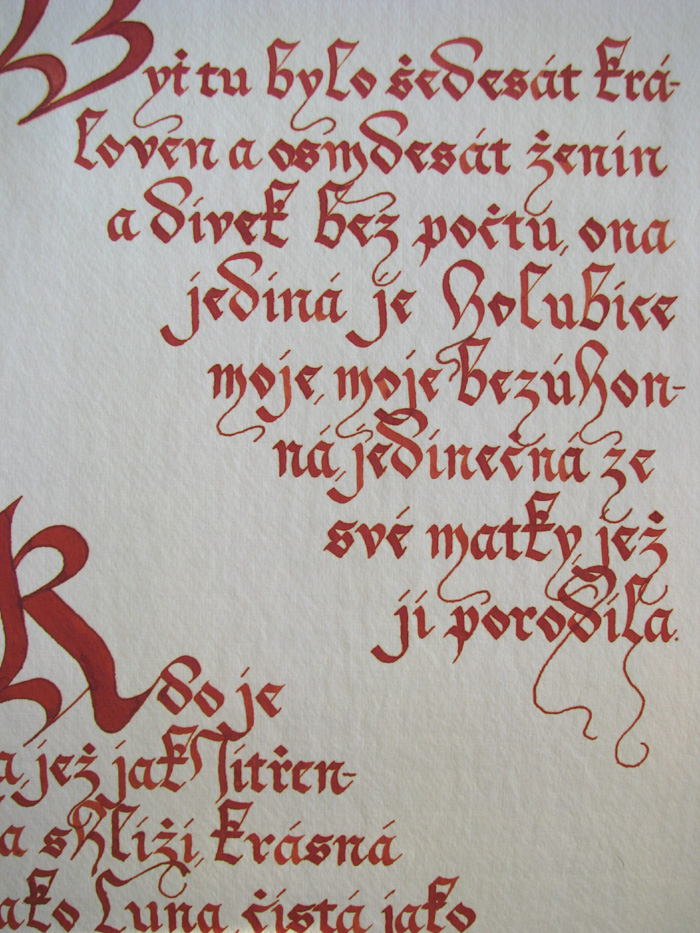 Byť tu bylo šedesát krá-
loven a osmdesát ženin
a dívek bez počtu, ona
jediná je holubice
moje, moje bezúhon-
ná, jedinečná ze
své matky, jež
ji porodila.
Kdo je
a, jež jak Jitřen-
a shlíží, krásná
ako Luna, čistá jako